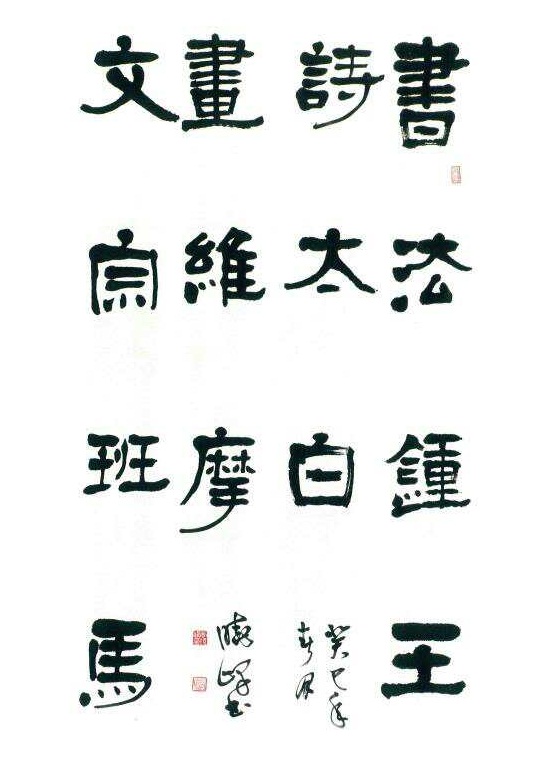 書法鍾王
詩太白
癸巳年
春月
畫維摩
曉峰书
文宗班馬